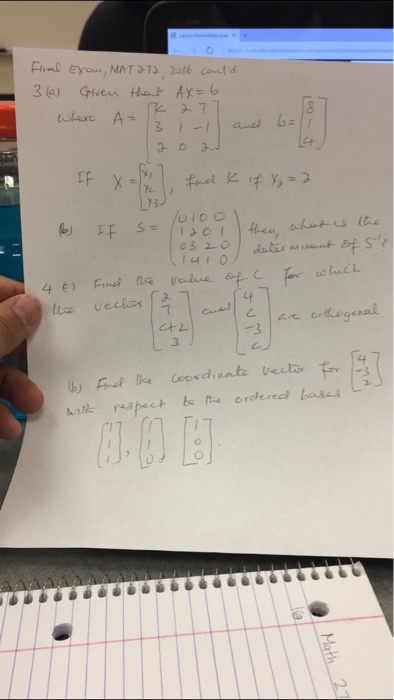 Final Exam, MAT 272, 2016 cont'd
3 (a) Given that AX = b
where A = [K 2 7
3 1 -1
2 0 2] and b = [8
1
4]
If X = [x1
x2
x3], find K if X2 = 2
(b) If S = (0 1 0 0
1 2 0 1
0 3 2 0
1 4 1 0) then, what is the
determinant of S⁻¹?
4 Find the value of C for which
the vectors [2
7
C+2
3] and [4
C
-3
C] are orthogonal
(b) Find the coordinate vector for [4
-3
2]
with respect to the ordered bases
[1
1
1], [1
1
0] [1
0
0].
Math 27